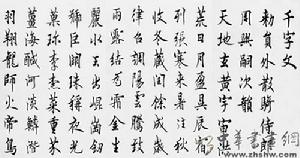 千字文
勑員外散騎侍郎
周興嗣次韻
天地玄黃宇宙洪
荒日月盈昃辰宿
列張寒來暑往秋
收冬藏閏餘成歲
律呂調陽雲騰致
雨露結為霜金生
麗水玉出崑崗劍
號巨闕珠稱夜光
菓珍李柰菜重芥
薑海鹹河淡鱗潛
羽翔龍師火帝鳥
www.zhshw.com